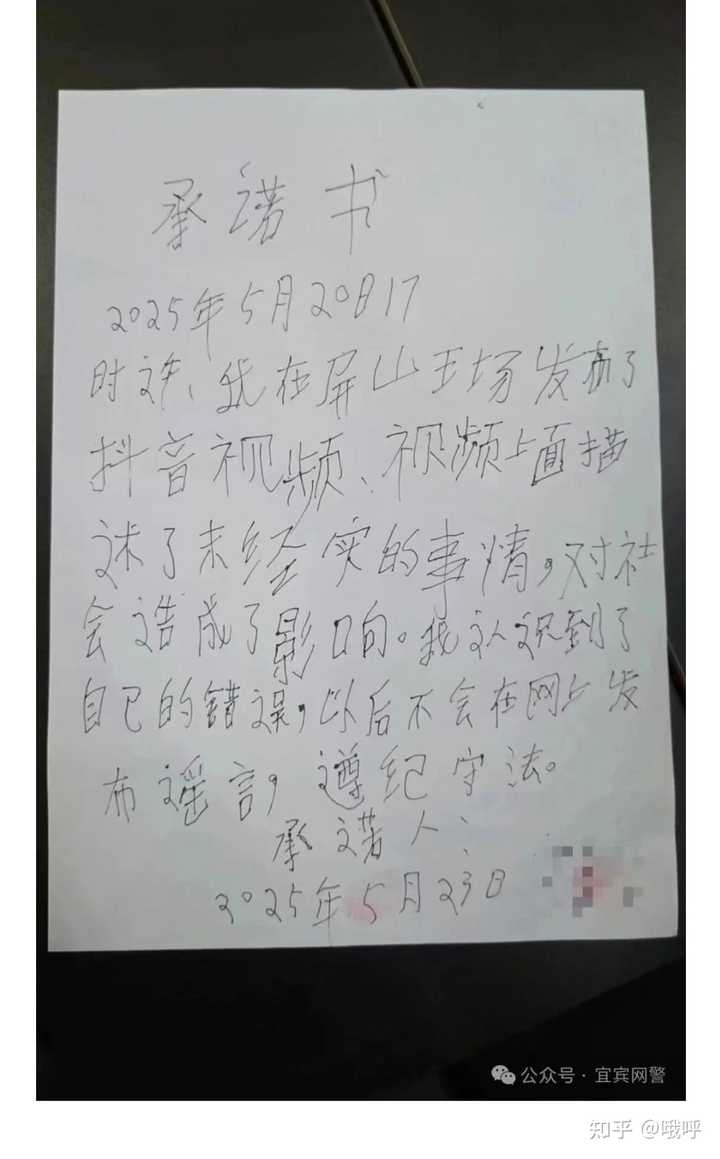 承诺书
2025年5月20日17
时许、我在屏山王场发布了
抖音视频、视频上面描
述了未经实的事情,对社
会造成了影响。我认识到了
自己的错误,以后不会在网上发
布谣言,遵纪守法。
承诺人:
2025年5月23日
公众号·宜宾网警
知乎 @哦呼